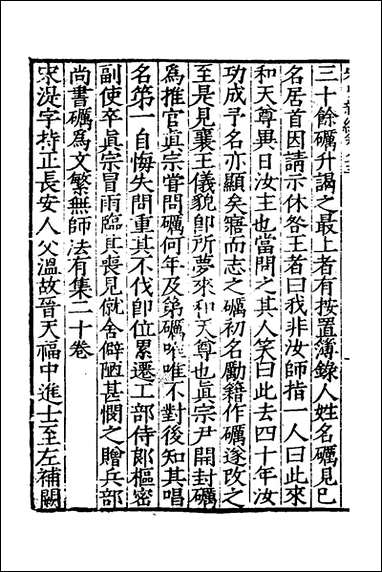 三十餘礪升謁之最上者有按置簿錄人姓名礪見已
名居首因請示休咎王者曰我非汝師指一人曰此來
和天尊異日汝主也當問之其人笑曰此去四十年汝
功成予名亦顯矣寤而志之礪初名勵籍作礪遂改之
至是見襄王儀貌卽所夢來和天尊也眞宗尹開封礪
爲推官眞宗嘗問礪何年及第礪唯唯不對後知其唱
名第一自悔失問重其不伐卽位累遷工部侍郞樞密
副使卒眞宗冒雨臨其喪見僦舍僻陋甚憫之贈兵部
尚書礪爲文繁無師法有集二十卷
宋湜字持正長安人父溫故晉天福中進士至左補闕